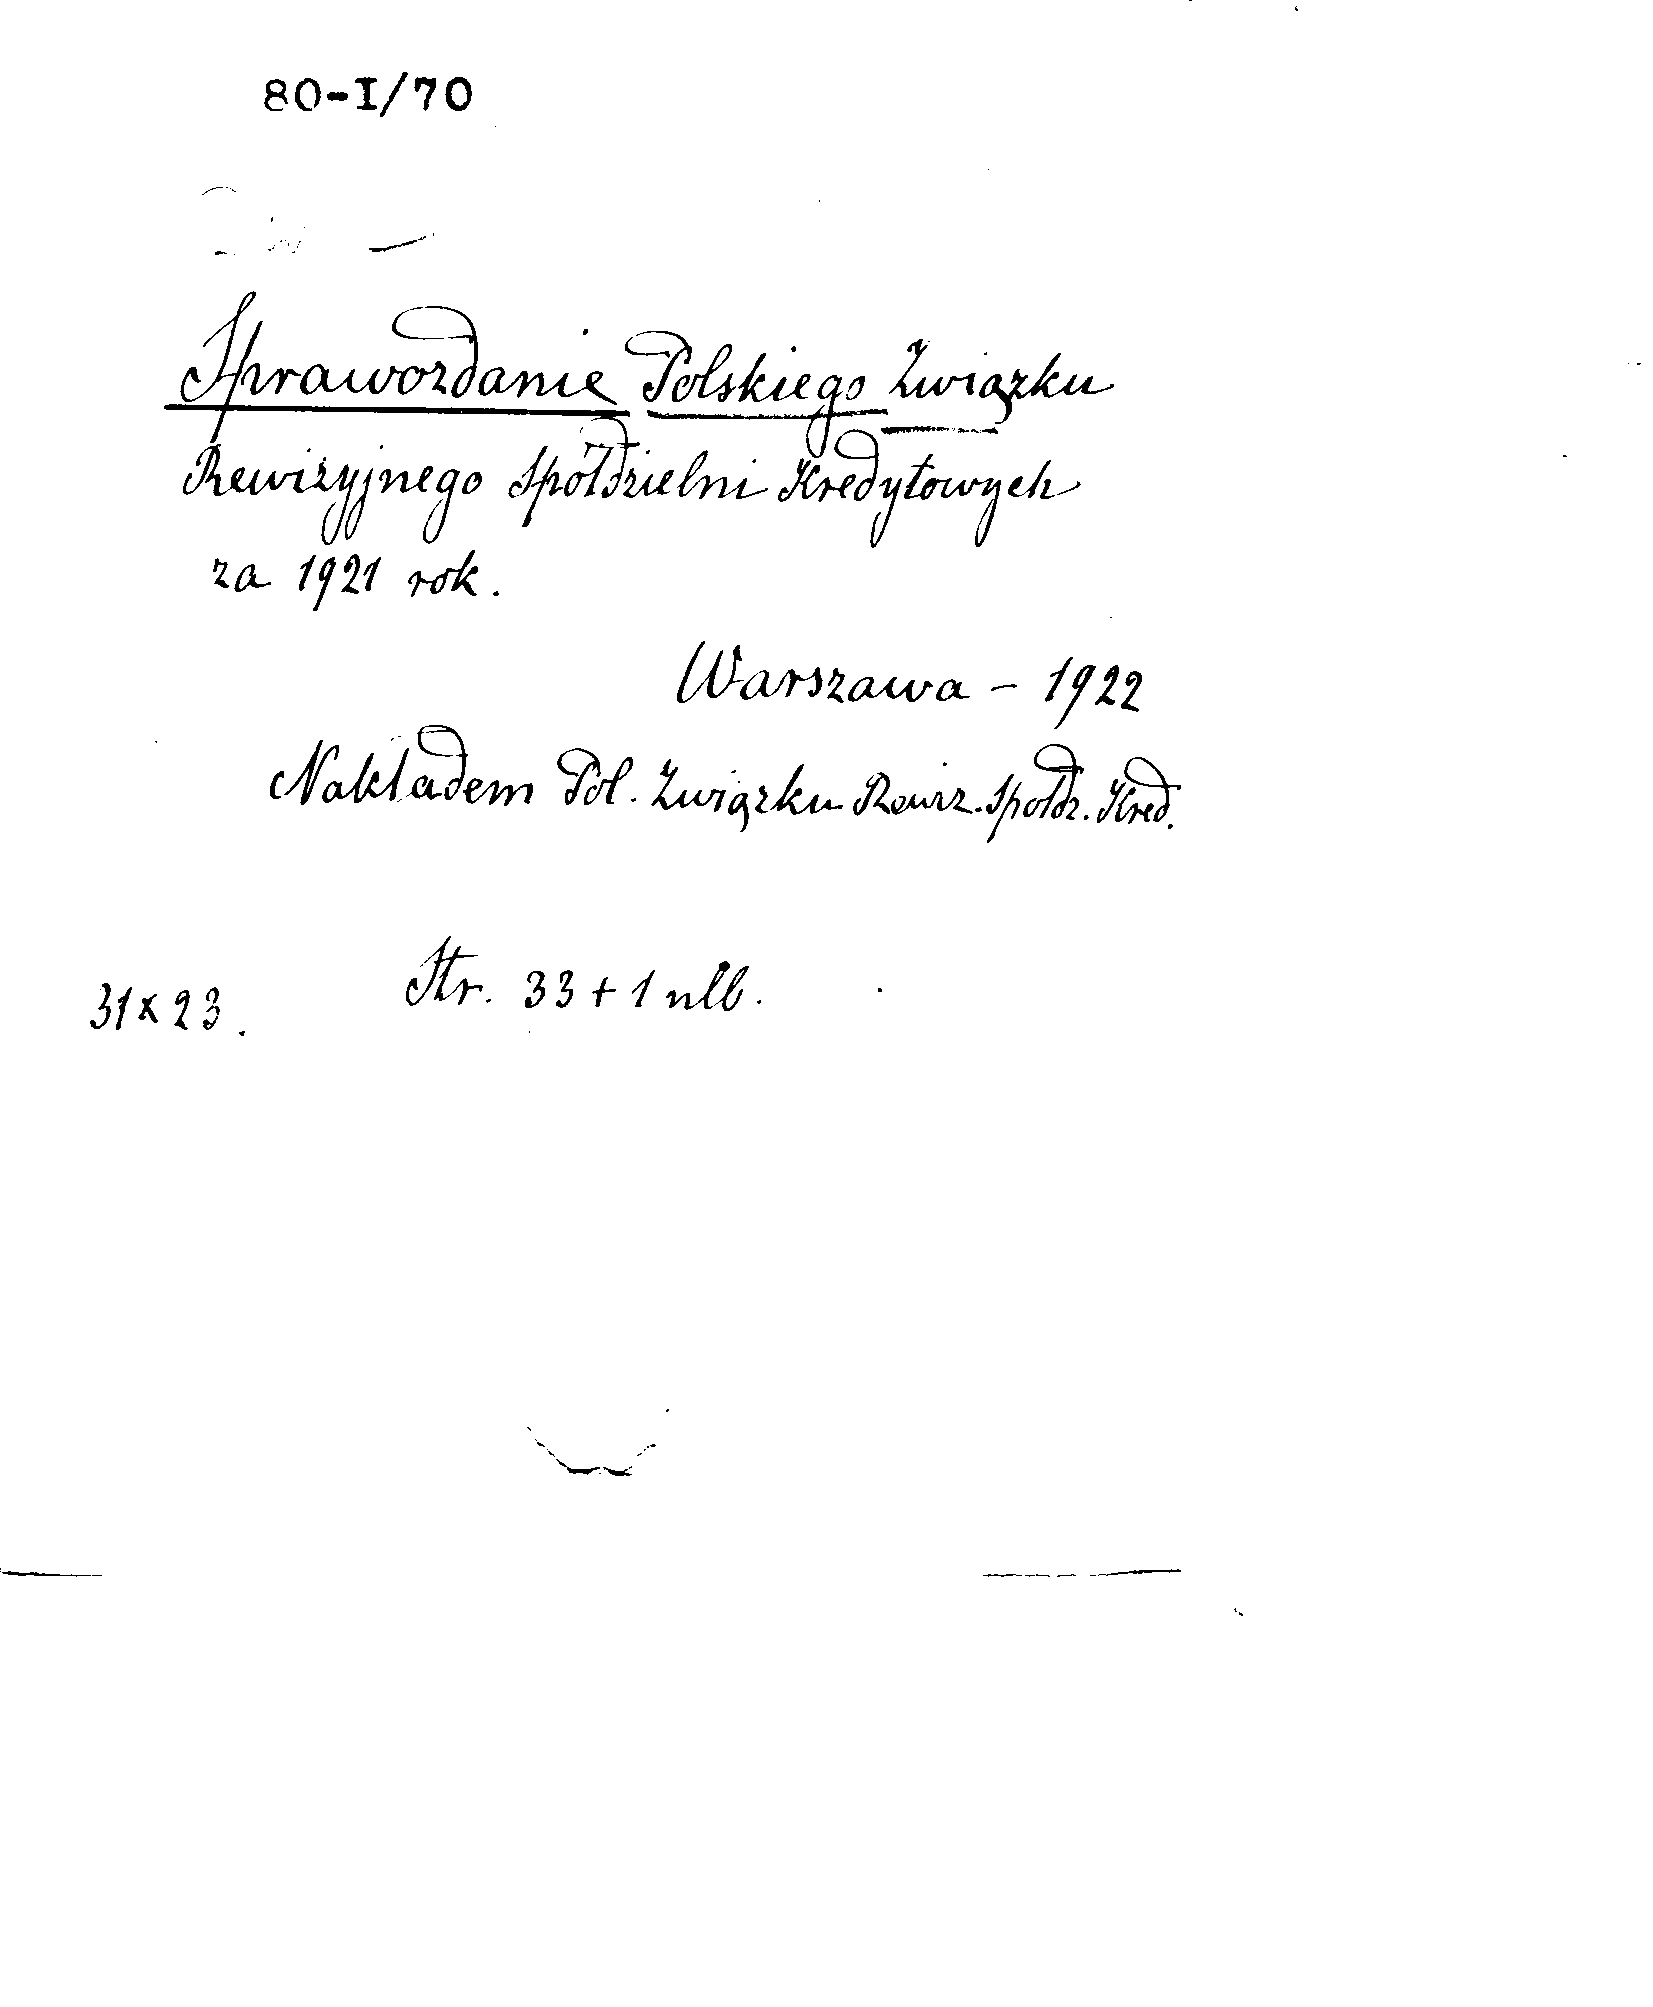 80-I/70
Sprawozdanie Polskiego Związku
Rewizyjnego Spółdzielni Kredytowych
za 1921 rok.
Warszawa - 1922
Nakładem Pol. Związku Rewiz. Spółdz. Kred.
Str. 33 + 1 nlb.
31 x 23.